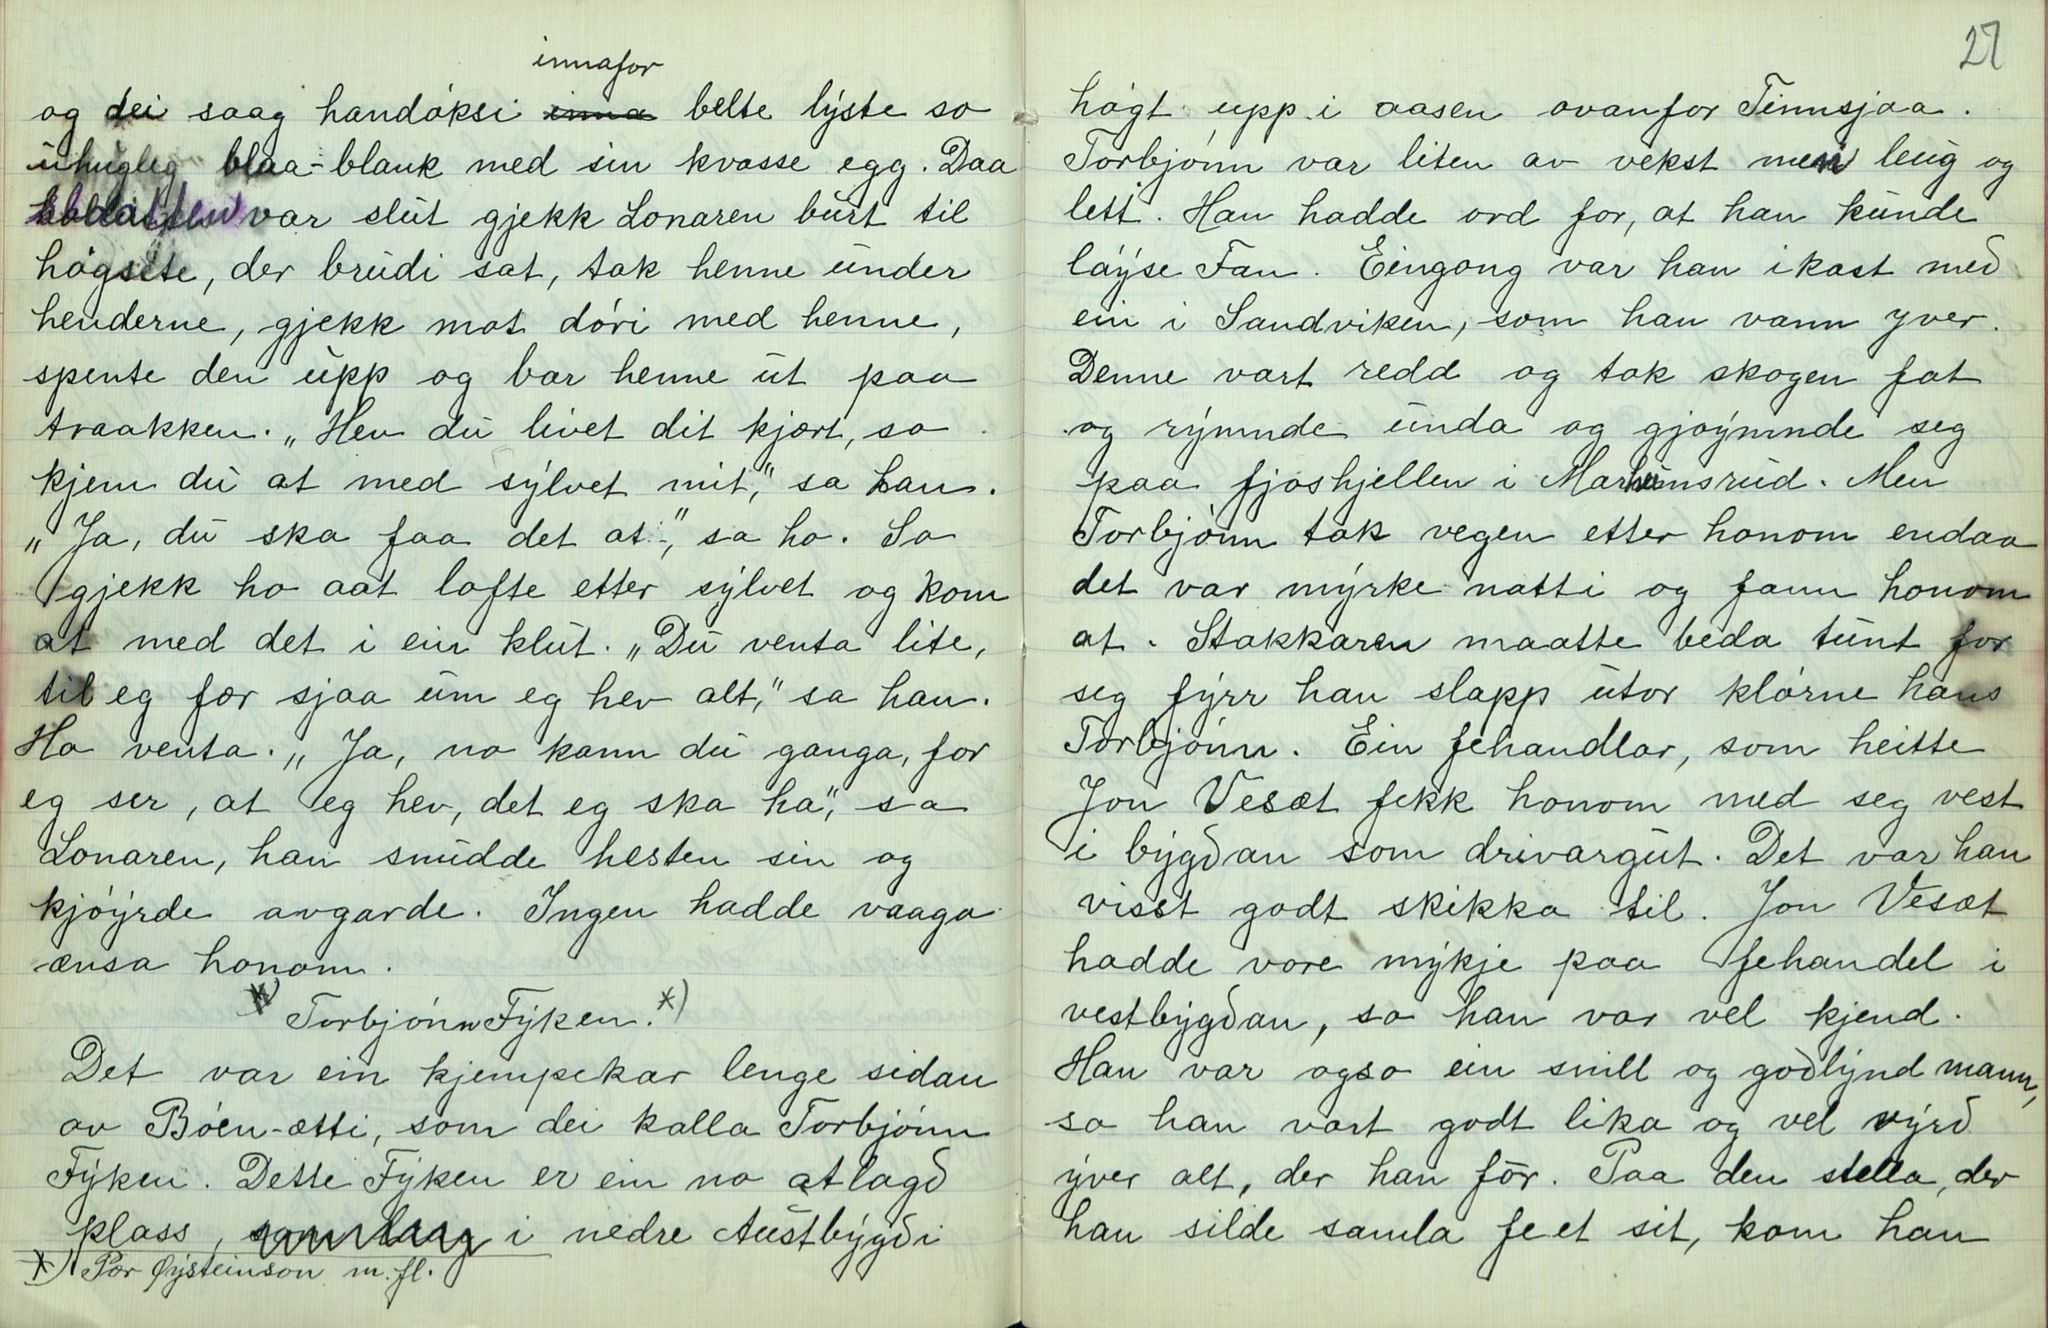 innafor
og dei saag handóksi inna belte lýste so
uhugleg blaa-blank med sin kvasse egg. Daa
var slut gjekk Lonaren burt til
hógsete, der brudi sat, tok henne under
henderne, gjekk mot dóri med henne,
spente den upp og bar henne ut paa
traakken. „Hev du livet dit kjært, so
kjem du at med sýlvet mit," sa han.
„Ja, du ska faa det at", sa ho. So
gjekk ho aat lofte etter sýlvet og kom
at med det i ein klut. „Du venta lite,
til eg fær sjaa um eg hev alt," sa han.
Ho venta. „Ja, no kann du ganga, for
eg ser, at eg hev, det eg ska ha", sa
Lonaren, han snudde hesten sin og
kjóýrde avgarde. Ingen hadde vaaga
ænsa honom.
*) Torbjónn Fýken. *)
Det var ein kjempekar lenge sidan
av Bóen-ætti, som dei kalla Torbjónn
Fýken. Dette Fýken er ein no atlagð
plass, som laag i nedre Austbýgði
*) Pær Øýsteinson m. fl.
27
hógt upp i aasen ovanfor Tinnsjaa.
Torbjónn var liten av vekst men leug og
lett. Han hadde ord for, at han kunde
lóýse Fan. Eingong var han i kast með
ein i Sandviken, som han vann yver.
Denne vart redd og tok skogen fat
og rýmde unda og gjóýmde seg
paa fjoshjellen i Marheimsrud. Men
Torbjónn tok vegen etter honom endaa
det var mýrke natti og fann honom
at. Stakkaren maatte beda tunt for
seg fýrr han slapp utor klórne hans
Torbjónn. Ein fehandlar, som heitte
Jon Vesæt fekk honom med seg vest
i býgðan som drivargut. Det var han
visst godt skikka til. Jon Vesæt
hadde vore mýkje paa fehandel i
vestbýgðan, so han var vel kjend.
Han var ogso ein snill og goðlýnd mann,
so han vart godt lika og vel výrð
ýver alt, der han fór. Paa den stella, der
han silde samla feet sit, kom han